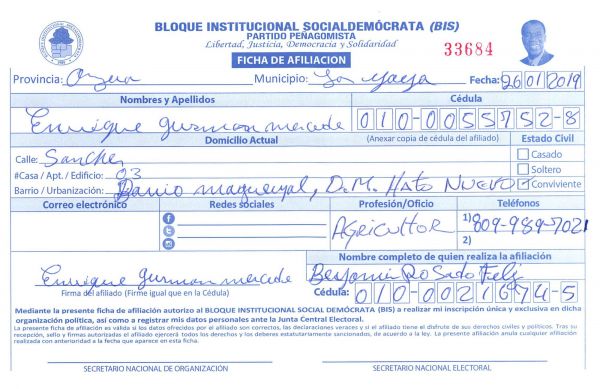 BLOQUE INSTITUCIONAL SOCIALDEMÓCRATA (BIS)
PARTIDO PEÑAGOMISTA
Libertad, Justicia, Democracia y Solidaridad
FICHA DE AFILIACION
33684
Provincia: Municipio: Los Fecha: 26 01 2019
Nombres y Apellidos Cédula
Enrique guzman mercede 010-0055752-8
Domicilio Actual (Anexar copia de cédula del afiliado) Estado Civil
Calle: Sanchez Casado
#Casa / Apt. / Edificio: 03 Soltero
Barrio / Urbanización: Barrio magueyal, D.M. HATO NUEVO Conviviente
Correo electrónico Redes sociales Profesión/Oficio Teléfonos
AgRICULTOR 1) 809-989-7021
2)
Nombre completo de quien realiza la afiliación
Enrique guzman mercede Benjamin Rosado Feliz
Firma del afiliado (Firme igual que en la Cédula) Cédula: 010-0021674-5
Mediante la presente ficha de afiliación autorizo al BLOQUE INSTITUCIONAL SOCIAL DEMÓCRATA (BIS) a realizar mi inscripción única y exclusiva en dicha
organización política, así como a registrar mis datos personales ante la Junta Central Electoral.
La presente ficha de afiliación es válida si los datos ofrecidos por el afiliado son correctos, las declaraciones veraces y si el afiliado tiene el disfrute de sus derechos civiles y políticos. Tras su
recepción, sello y firmas autorizadas el afiliado ejercerá todos los derechos y los deberes estatutariamente sancionados, de acuerdo a la ley. La presente afiliación anula cualquier afiliación
realizada con anterioridad a la fecha que aparece en esta ficha.
SECRETARIO NACIONAL DE ORGANIZACIÓN SECRETARIO NACIONAL ELECTORAL